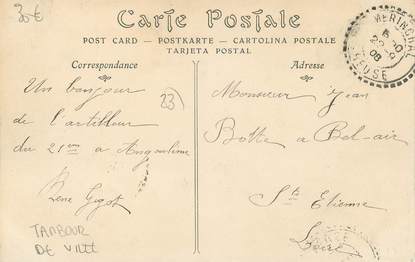 30€
Carte Postale
POST CARD — POSTKARTE — CARTOLINA POSTALE
TARJETA POSTAL
Correspondance
Adresse
MERINCHAL
CREUSE
08
Un bonjour
de l'artilleur
du 21ème a Angoulême
René Gigot
23)
TAMBOUR
DE VILLE
Monsieur Jean
Botte a Bel-air
St Etienne
Loire